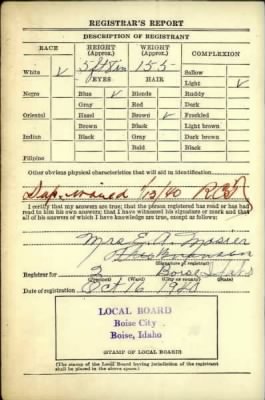 REGISTRAR'S REPORT
DESCRIPTION OF REGISTRANT
RACE HEIGHT (Approx.) WEIGHT (Approx.) COMPLEXION
5 ft 8 in 155 Sallow
White ✓ EYES HAIR Light ✓
Negro Blue ✓ Blonde Ruddy
Gray Red Dark
Oriental Hazel Brown ✓ Freckled
Brown Black Light brown
Indian Black Gray Dark brown
Bald Black
Filipino
Other obvious physical characteristics that will aid in identification
I certify that my answers are true; that the person registered has read or has had
read to him his own answers; that I have witnessed his signature or mark and that
all of his answers of which I have knowledge are true, except as follows:
Mrs. E. A.
(Signature of registrar)
Registrar for 2 Boise Idaho
(Precinct) (Ward) (City or county) (State)
Date of registration Oct 16 1940
LOCAL BOARD
Boise City
Boise, Idaho
STAMP OF LOCAL BOARD
(The stamp of the Local Board having jurisdiction of the registrant
shall be placed in the above space.)